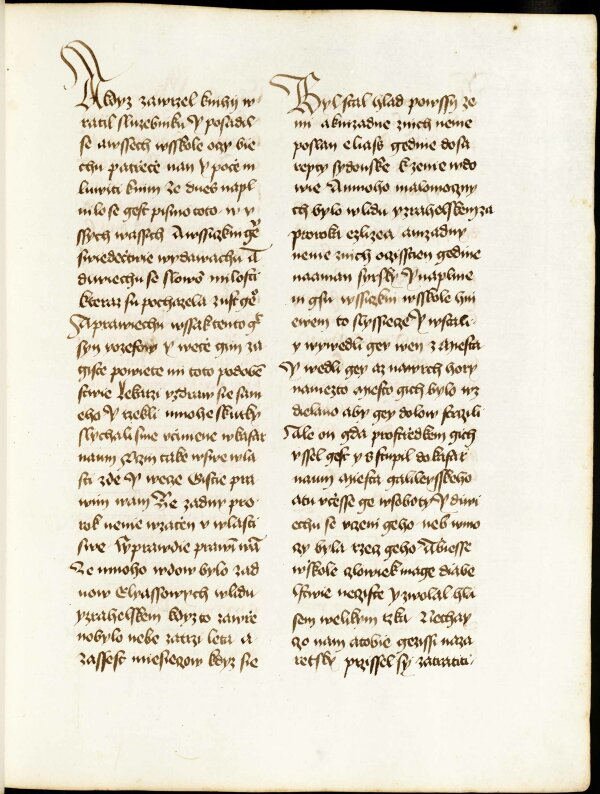 A kdyz zawrzel knihy w
ratil sluzebniku Y posadil
se awssech wsskole oczy bie
chu patrzece nan Y pocze m
luwiti knim Ze dnes napl
nilo se gest pismo toto w v
ssych wassich A wssiczkni ge°
swiedeczwie wydawachu A
diwiechu se slowo milosti
kteraz su pochazela z ust ge°
A prawiechu wssak tento gt
syn iozefow Y wece gim za
giste powiete mi toto podobe
stwie lekarzi vzdraw se sam
eho Y rzekli mnohe skutky
slychali sme vczinene w kafar
naum czin take w swe wla
sti zde Y wece Gistie pra
wim wam Ze zadny pro
rok nenie wzacen v wlasti
swe W prawdie prawi wa
Ze mnoho wdow bylo zad
now Elyassowych w lidu
yzrahelskem kdyz to zawrie
no bylo nebe za trzi leta a
za ssest miesiecow kdyz sie
Byl stal hlad powssy ze
mi a k nizadne z nich nenie
poslan elias gedine do sa
repty sydonske k zenie wdo
wie A mnoho malomoczny
ch bylo w lidu yzrahelskem za
proroka elizea a nizadny
nenie z nich oczisstien gedine
naaman syrsky Y naplnie
ni gsu wssiczkni w sskole hni
ewem to slyssiece Y wstali
y wywedli gey wen z miesta
Y wedli gey az na wrch hory
na niezto miesto gich bylo vz
dielano aby gey dolow strczili
Ale on gda prostrziedkem gich
yssel gest y sstupil do kafar
naum miesta galileysskeho
a tu vczesse ge w soboty Y diwi
echu se vczeni geho neb w mo
czy byla rzecz geho A biesse
w skole czlowiek mage diabe
lstwie necziste y zwolal hla
sem welikym rzka Nechay
czo nam a tobie gezissi naza
retsky przissel sy zatratiti